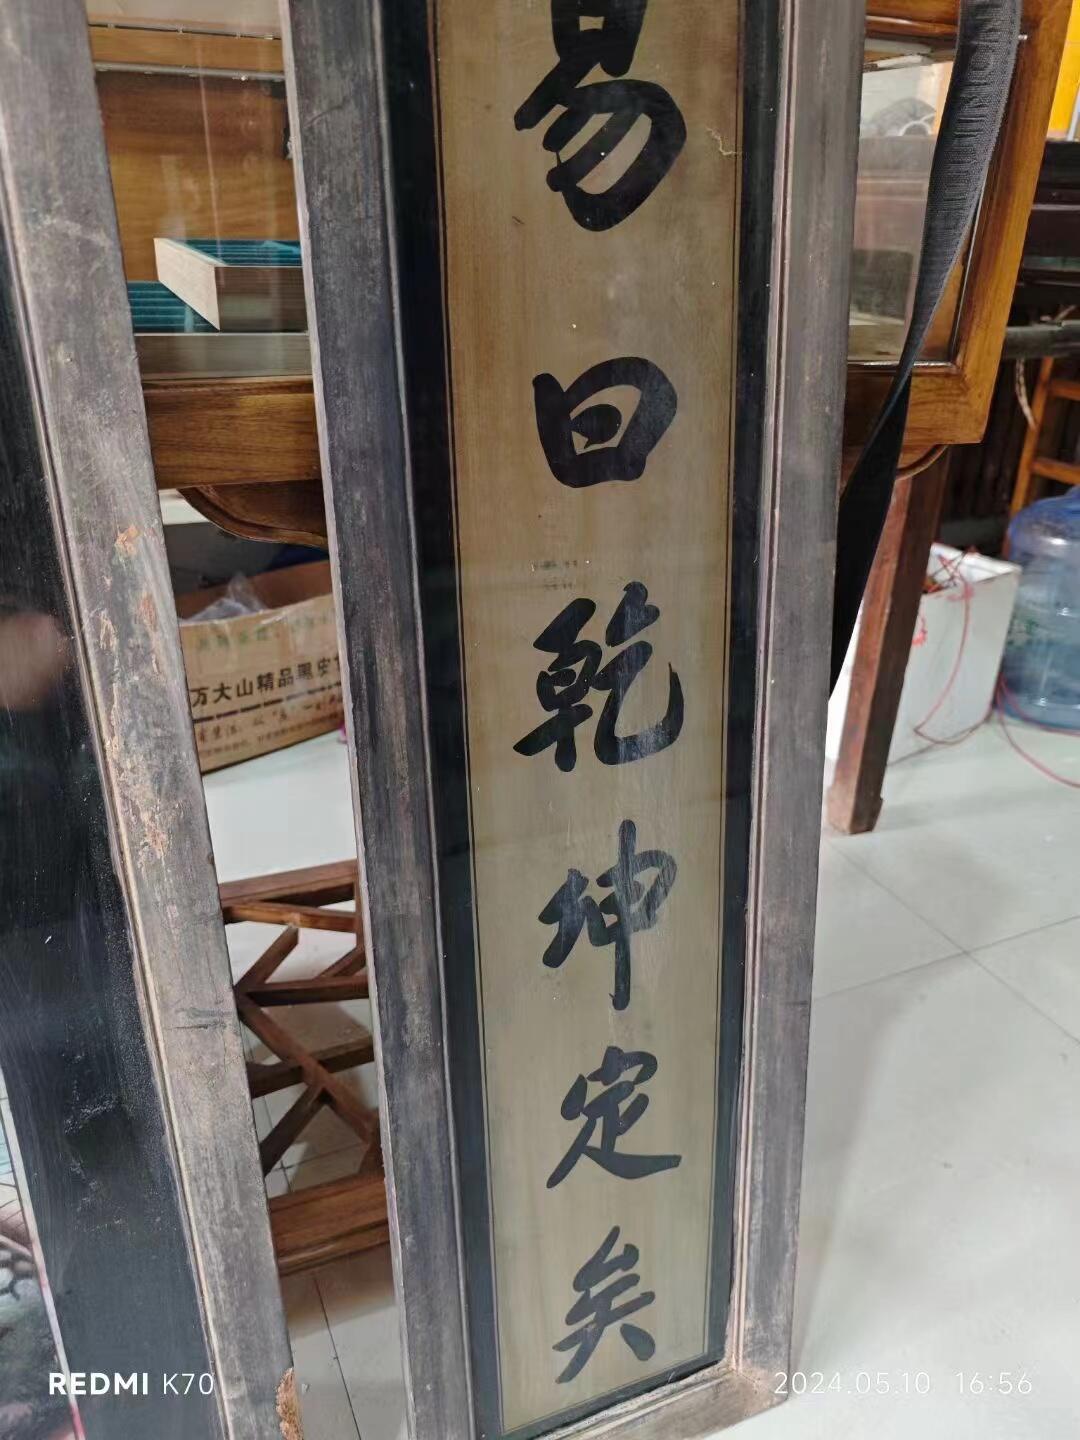 易曰乾坤定矣
万大山精品黑
REDMI K70
2024.05.10 16:56